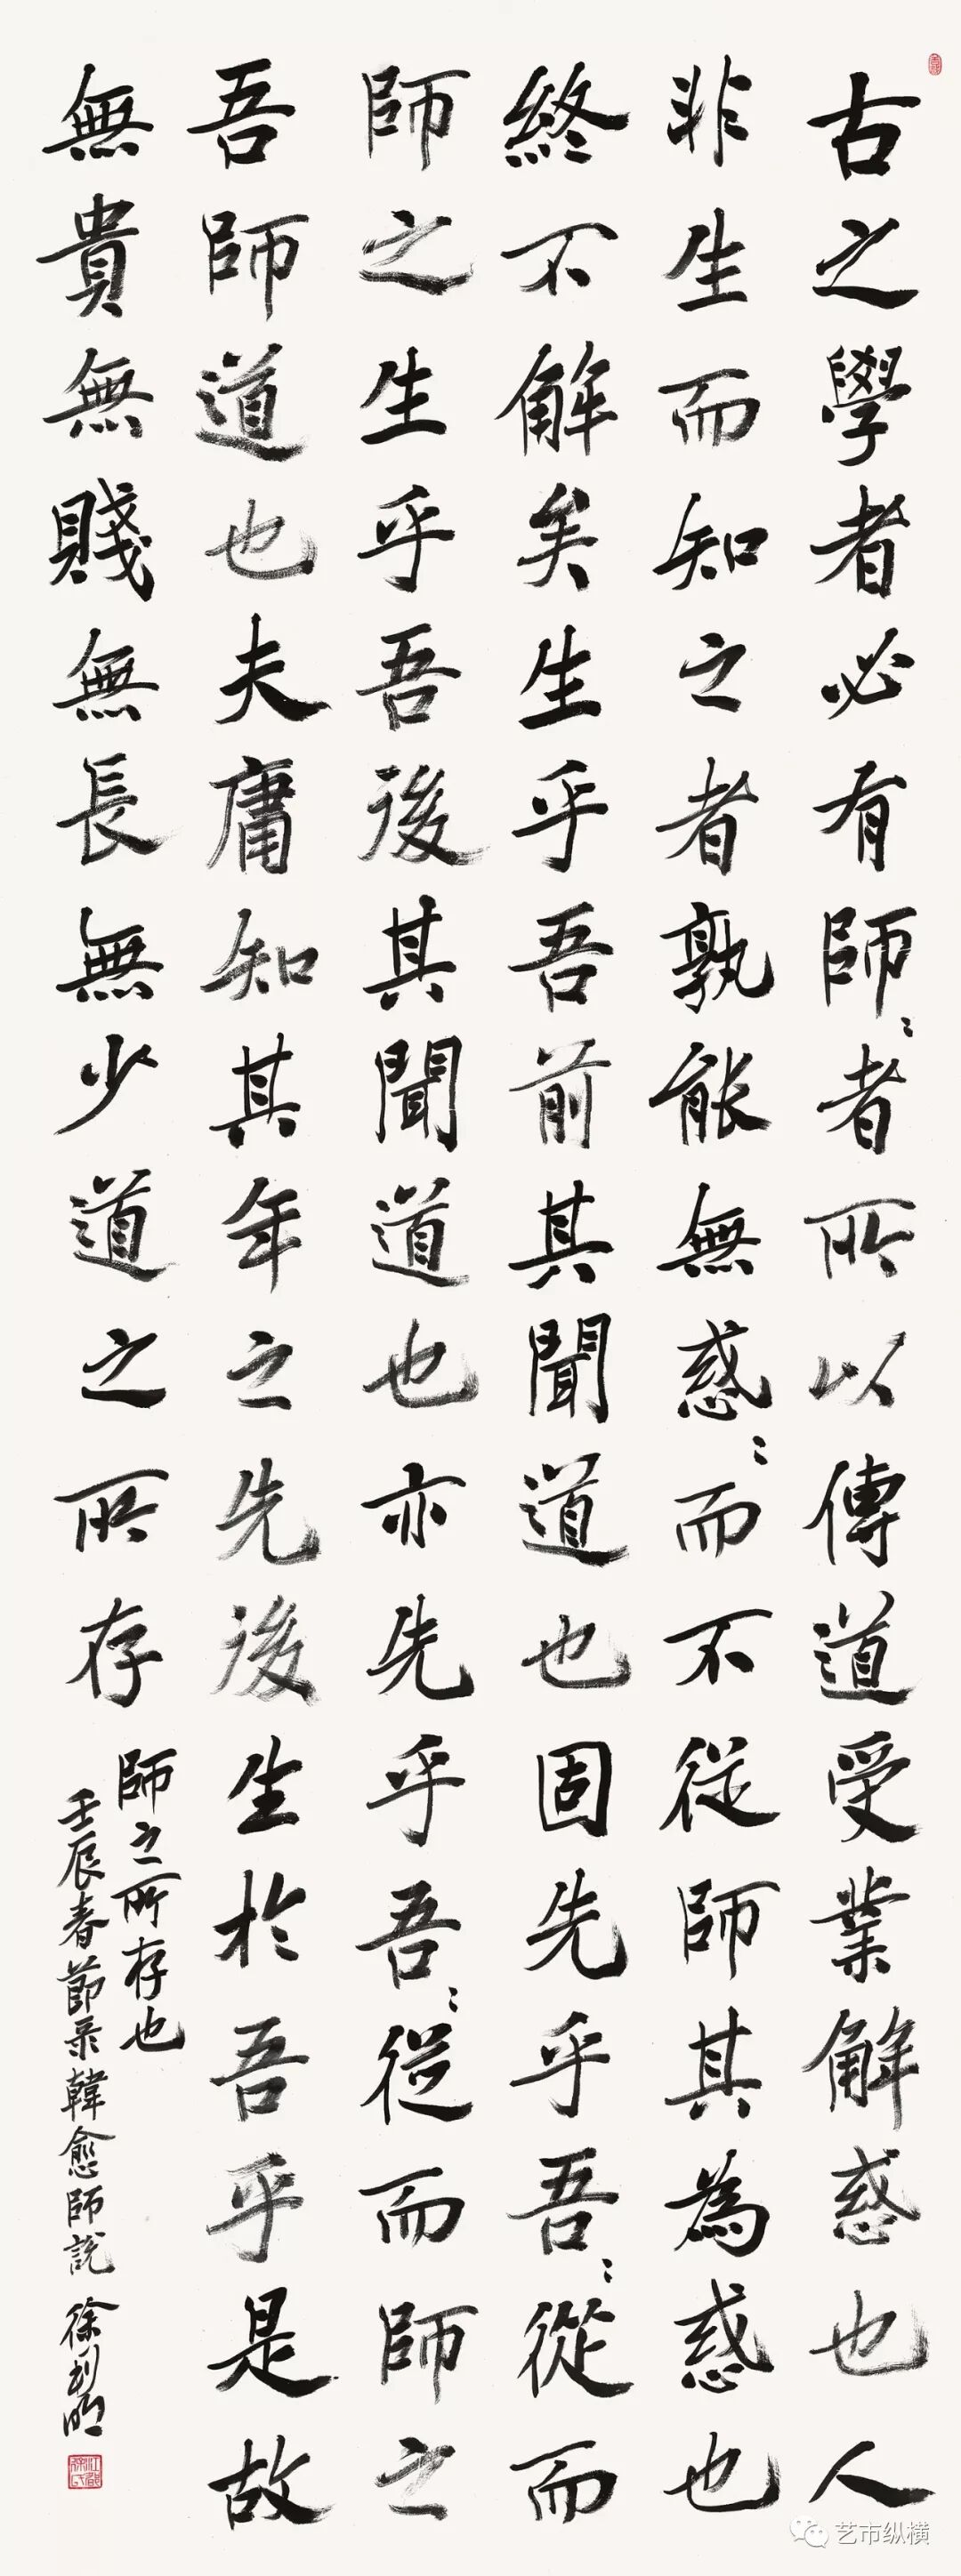 古之學者必有師〻者所以傳道受業解惑也人
非生而知之者孰能無惑〻而不從師其為惑也
終不解矣生乎吾前其聞道也固先乎吾〻從而
師之生乎吾後其聞道也亦先乎吾〻從而師之
吾師道也夫庸知其年之先後生於吾乎是故
無貴無賤無長無少道之所存
師之所存也
壬辰春節录韓愈師說 徐利明
艺市纵横